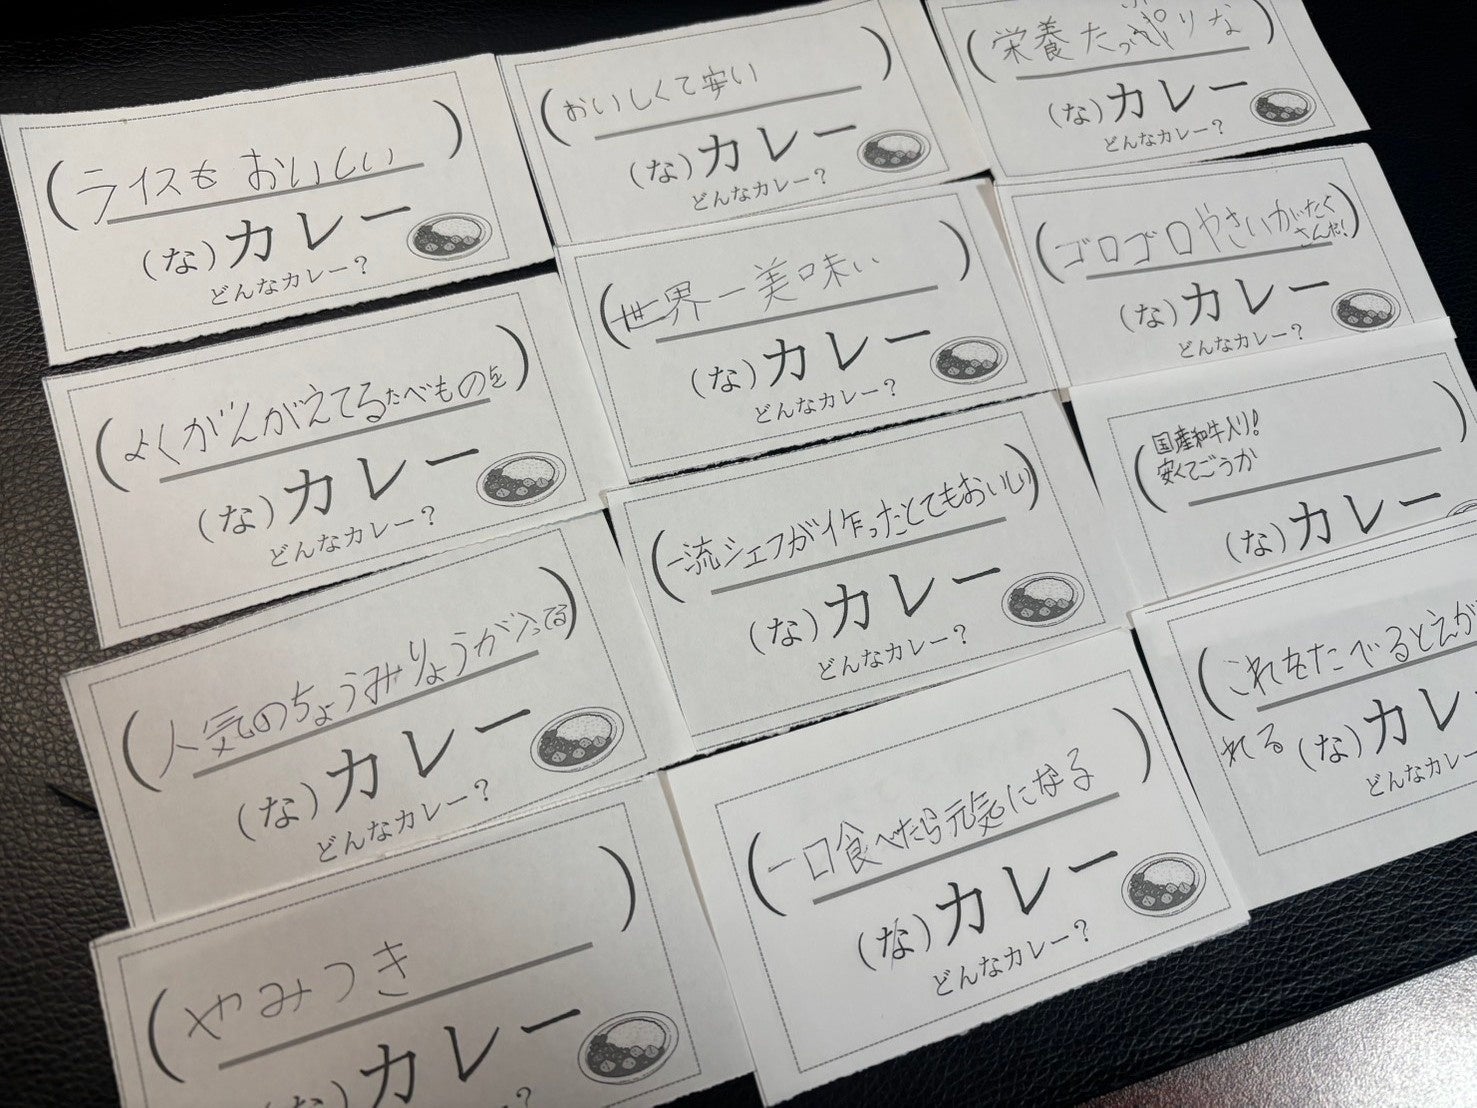 ライスもおいしい
(な)カレー
どんなカレー？
よくがんがえてるたべものを
(な)カレー
どんなカレー？
人気のちょうみりょうが入ってる
(な)カレー
どんなカレー？
やみつき
(な)カレー
おいしくて安い
(な)カレー
どんなカレー？
世界一美味い
(な)カレー
どんなカレー？
一流シェフが作ったとてもおいしい
(な)カレー
どんなカレー？
一口食べたら元気になる
(な)カレー
どんなカレー？
栄養たっぷりな
(な)カレー
どんなカレー？
ゴロゴロやさいがたく
さんだ!
(な)カレー
どんなカレー？
国産和牛入り!
安くてごうか
(な)カレー
これをたべるとえが
れる
(な)カレ
どんなカレー